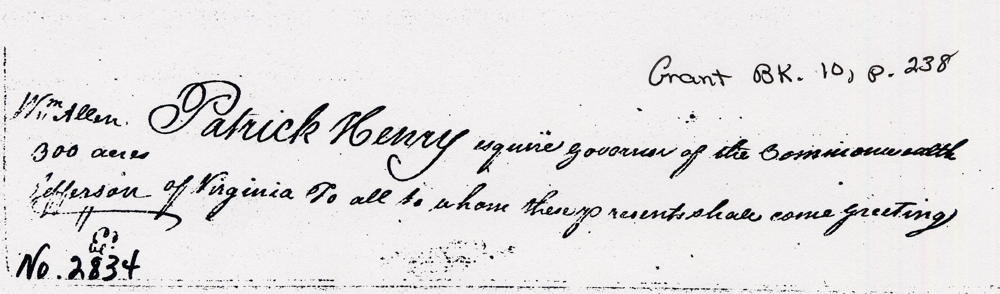 Grant BK. 10, p. 238
Wm Allen. Patrick Henry esquire governor of the Commonwealth
300 acres
Jefferson of Virginia To all to whom these presents shall come Greeting
No. 2834